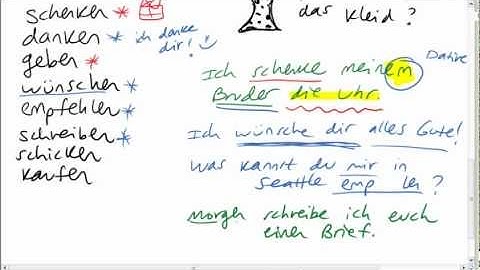 schenken *
danken * ich danke dir!
geben *
wünschen *
empfehlen *
schreiben *
schicken
kaufen
das Kleid?
Dative
Ich schenke meinem
Bruder die Uhr.
Ich wünsche dir alles Gute!
Was kannst du mir in
Seattle emp len?
Morgen schreibe ich euch
einen Brief.